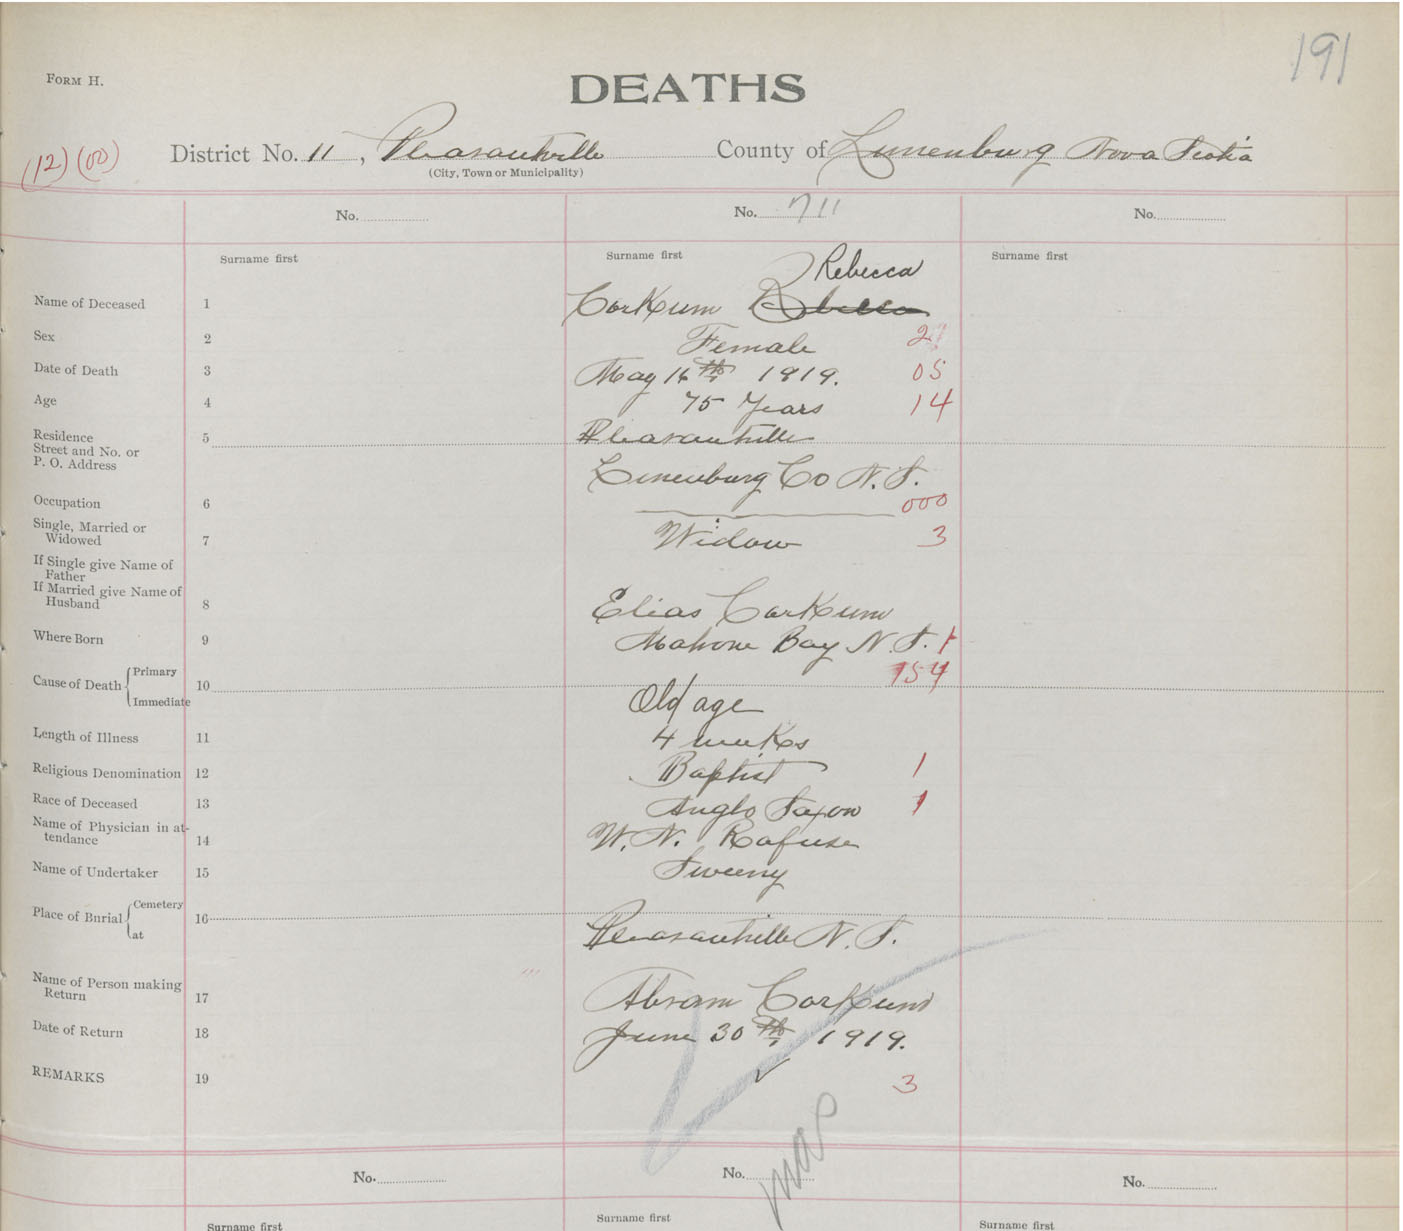 191
FORM H.
DEATHS
(12) (00) District No. 11, Pleasantville County of Lunenburg Nova Scotia
(City, Town or Municipality)
No. No. 711 No.
Surname first Surname first Surname first
Rebecca
Name of Deceased 1 Corkum Rebecca
Sex 2 Female 2
Date of Death 3 May 16th 1919. 05
Age 4 75 Years 14
Residence 5 Pleasantville
Street and No. or
P. O. Address Lunenburg Co N. S.
Occupation 6 000
Single, Married or
Widowed 7 Widow 3
If Single give Name of
Father
If Married give Name of
Husband 8 Elias Corkum
Where Born 9 Mahone Bay N. S. 1
154
Cause of Death { Primary 10
Immediate Old age
Length of Illness 11 4 weekes
Religious Denomination 12 Baptist 1
Race of Deceased 13 Anglo Saxon 1
Name of Physician in at-
tendance 14 W. N. Rafuse
Name of Undertaker 15 Sweeny
Place of Burial { Cemetery 16
at Pleasantville N. S.
Name of Person making
Return 17 Abram Corkum
Date of Return 18 June 30th 1919.
REMARKS 19 3
No. No. No.
Surname first Surname first Surname first